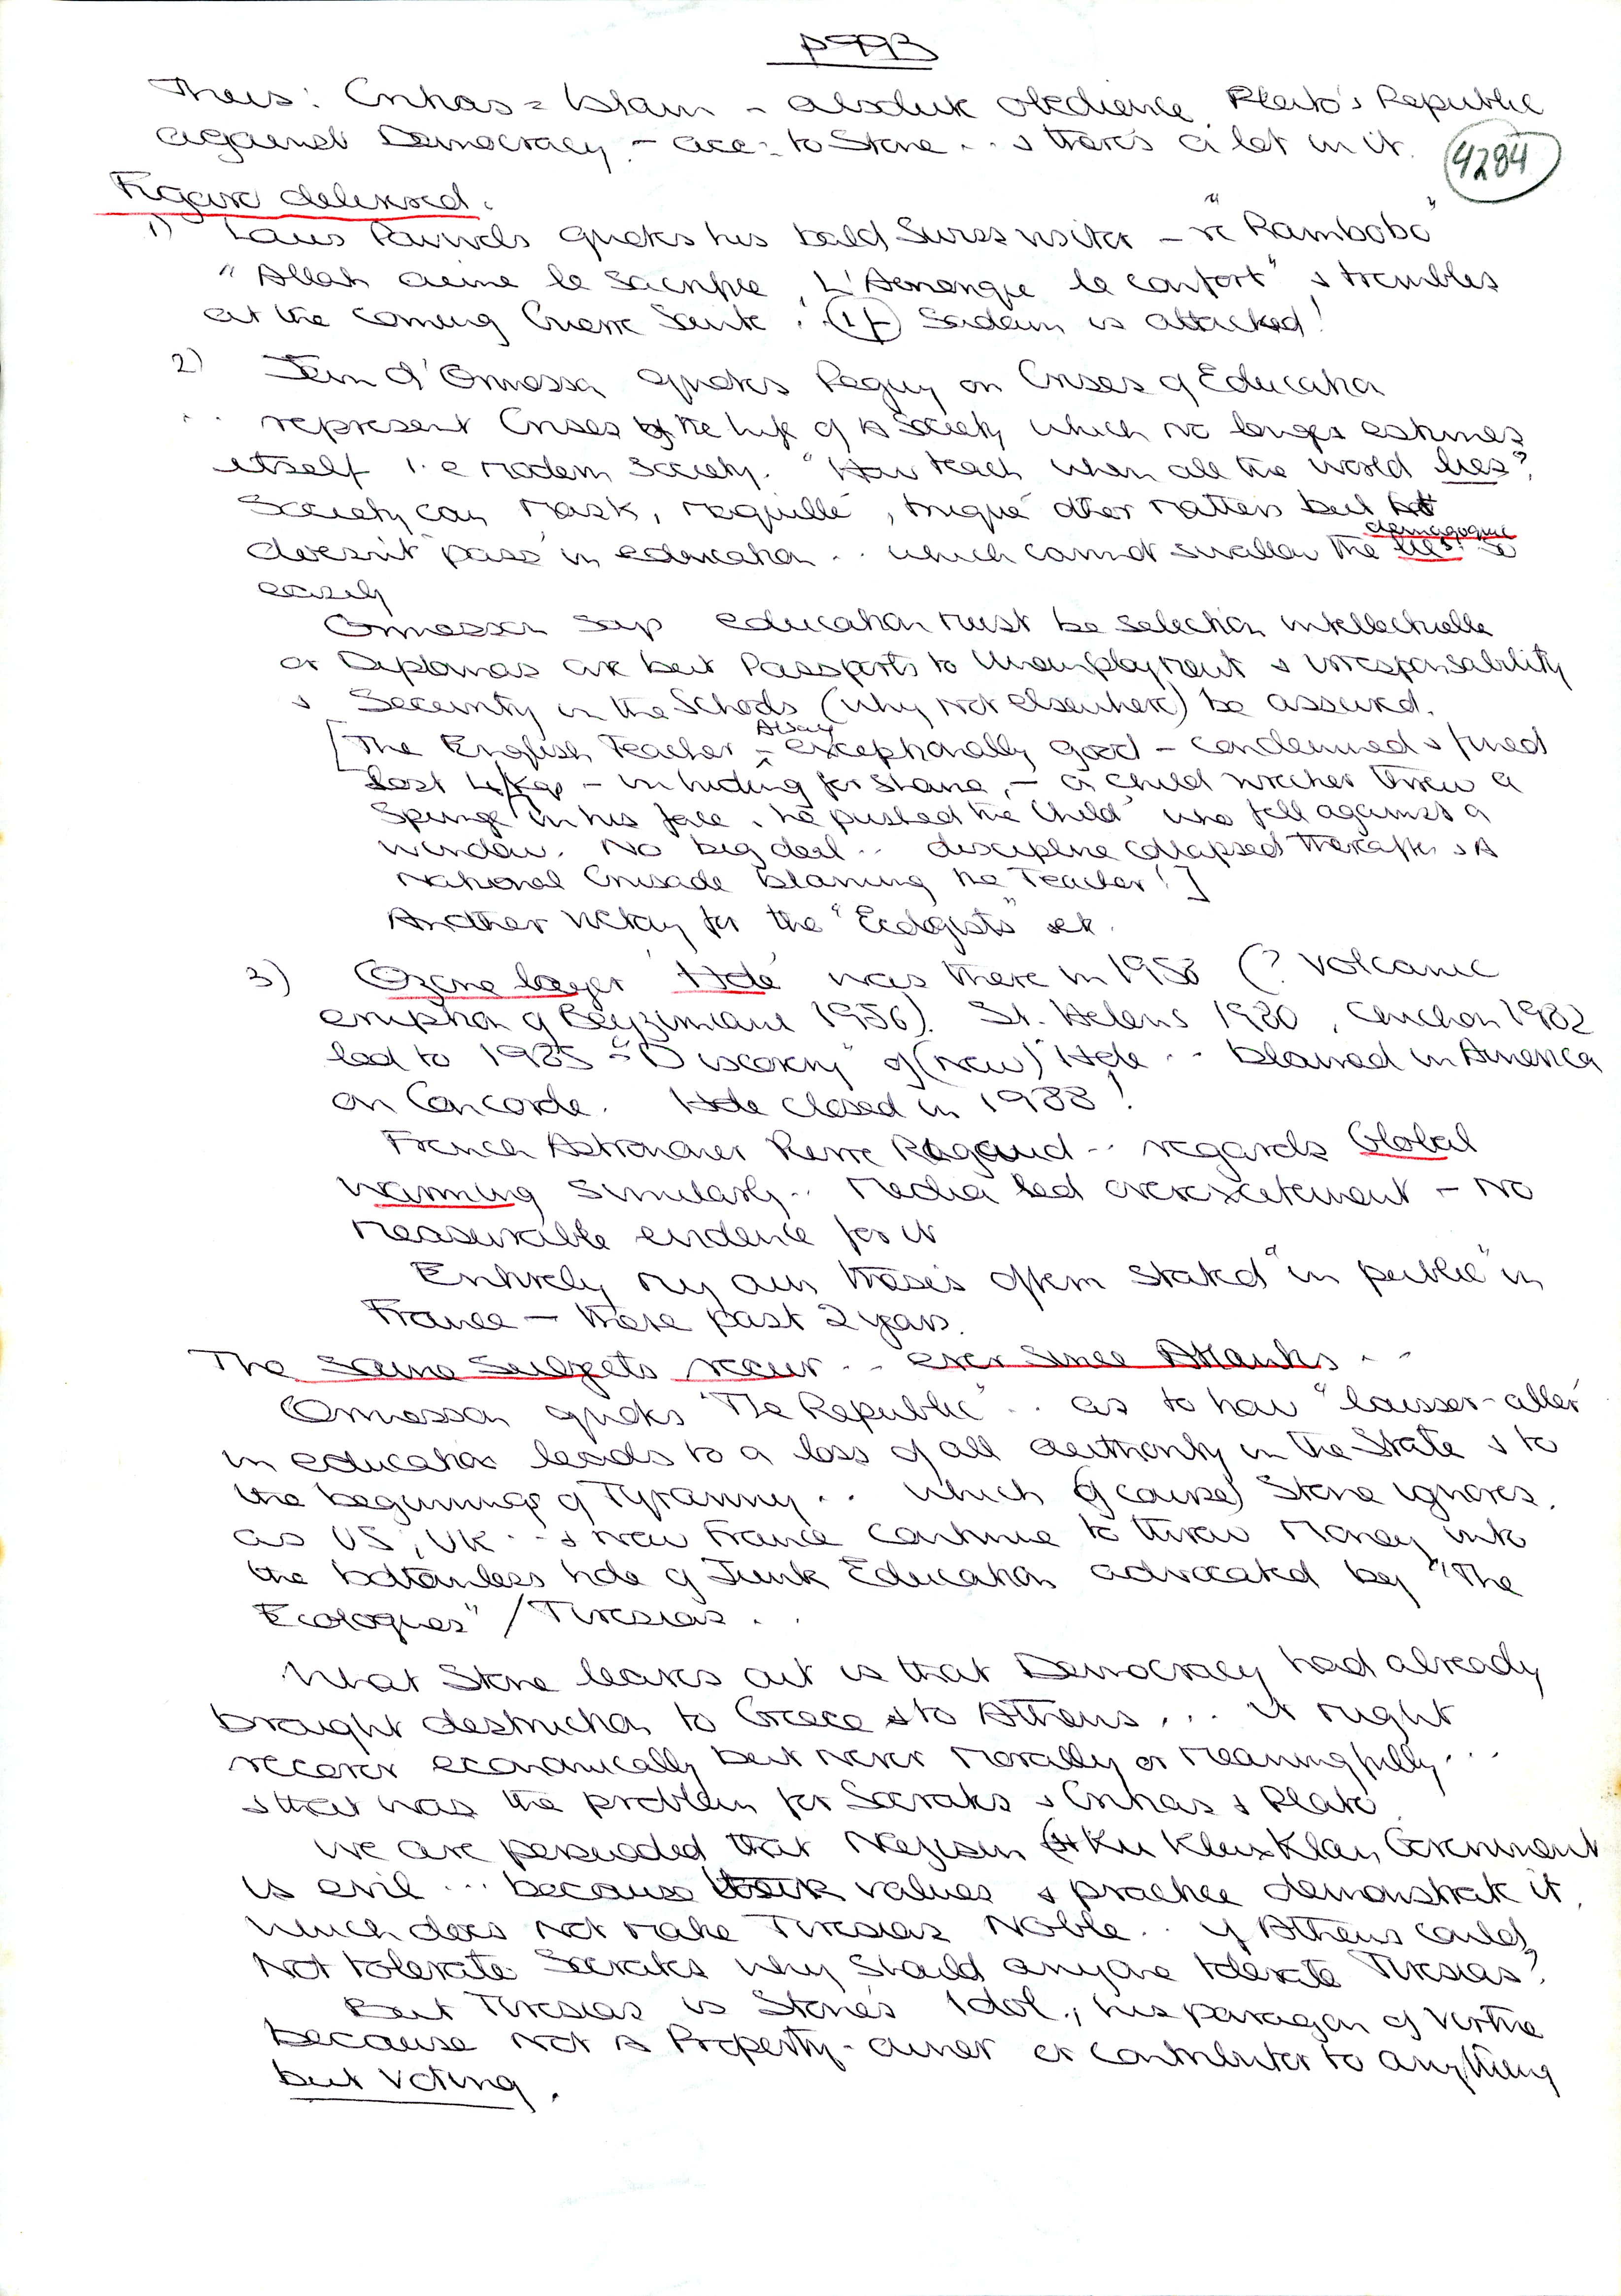 p993
Thus: Critias = Islam - absolute obedience. Plato's Republic
against Democracy - acc. to Stone .. & there's a lot in it.
4284
Figaro delivered.
1) Louis Pauwels quotes his bald Swiss visitor - re "Rambobo"
"Allah aime le sacrifice, L'Amerique le confort" & trembles
at the coming Guerre Sainte . (if) Sadam is attacked!
2) Jean d'Ormesson quotes Peguy on Crises of Education
.. represent Crises of the life of a society which no longer estimes
itself i.e modern society. "How teach when all the world lies?
Society can mask, maquille, truqué other matters but
doesn't "pass" in education .. which cannot swallow the lies so
demagogue
easily
Ormesson says education must be selection intellectuelle
or Diplomas are but Passports to Unemployment & irresponsability
& Security in the Schools (why not elsewhere) be assured.
[The English Teacher - exceptionally good - condemned & fined
lost - in hiding for shame, - a child threw a
Sponge in his face, he pushed the "Child" who fell against a
window. No big deal .. discipline collapsed thereafter & A
National Crusade blaming the Teacher!]
Another victory for the "Ecologists" etc.
3) Ozone layer 'Hole' was there in 1958 (? volcanic
eruption of 1956). St. Helens 1980, 1982
led to 1985 - "Discovery" of (new) Hole .. blamed in America
on Concorde. Hole closed in 1988!
French Astronomer Pierre .. regards Global
Warming similarly .. Media led overexcitement - no
measurable evidence for it
Entirely my own thesis often stated "in public" in
France - these past 2 years.
The same subjects recur .. ever since Atlantis ..
Ormesson quotes "The Republic" .. as to how "laisser-aller"
in education leads to a loss of all authority in the State & to
the beginnings of Tyranny .. which (of course) Stone ignores.
as US, UK .. & now France continue to throw Money into
the bottomless hole of Junk Education advocated by "The
Ecologues" / Tiresias . .
What Stone leaves out is that Democracy had already
brought destruction to Greece & to Athens ... it might
recover economically but never morally or meaningfully ...
& that was the problem for Socrates & Critias & Plato.
We are persuaded that Nazism or Ku Klux Klan Government
is evil ... because their values & practice demonstrate it.
which does not make Tiresias Noble .. if Athens could
not tolerate Socrates why should anyone tolerate Tiresias?
But Tiresias is Stone's Idol, his paragon of Virtue
because not a Property-owner or contributer to anything
but voting.